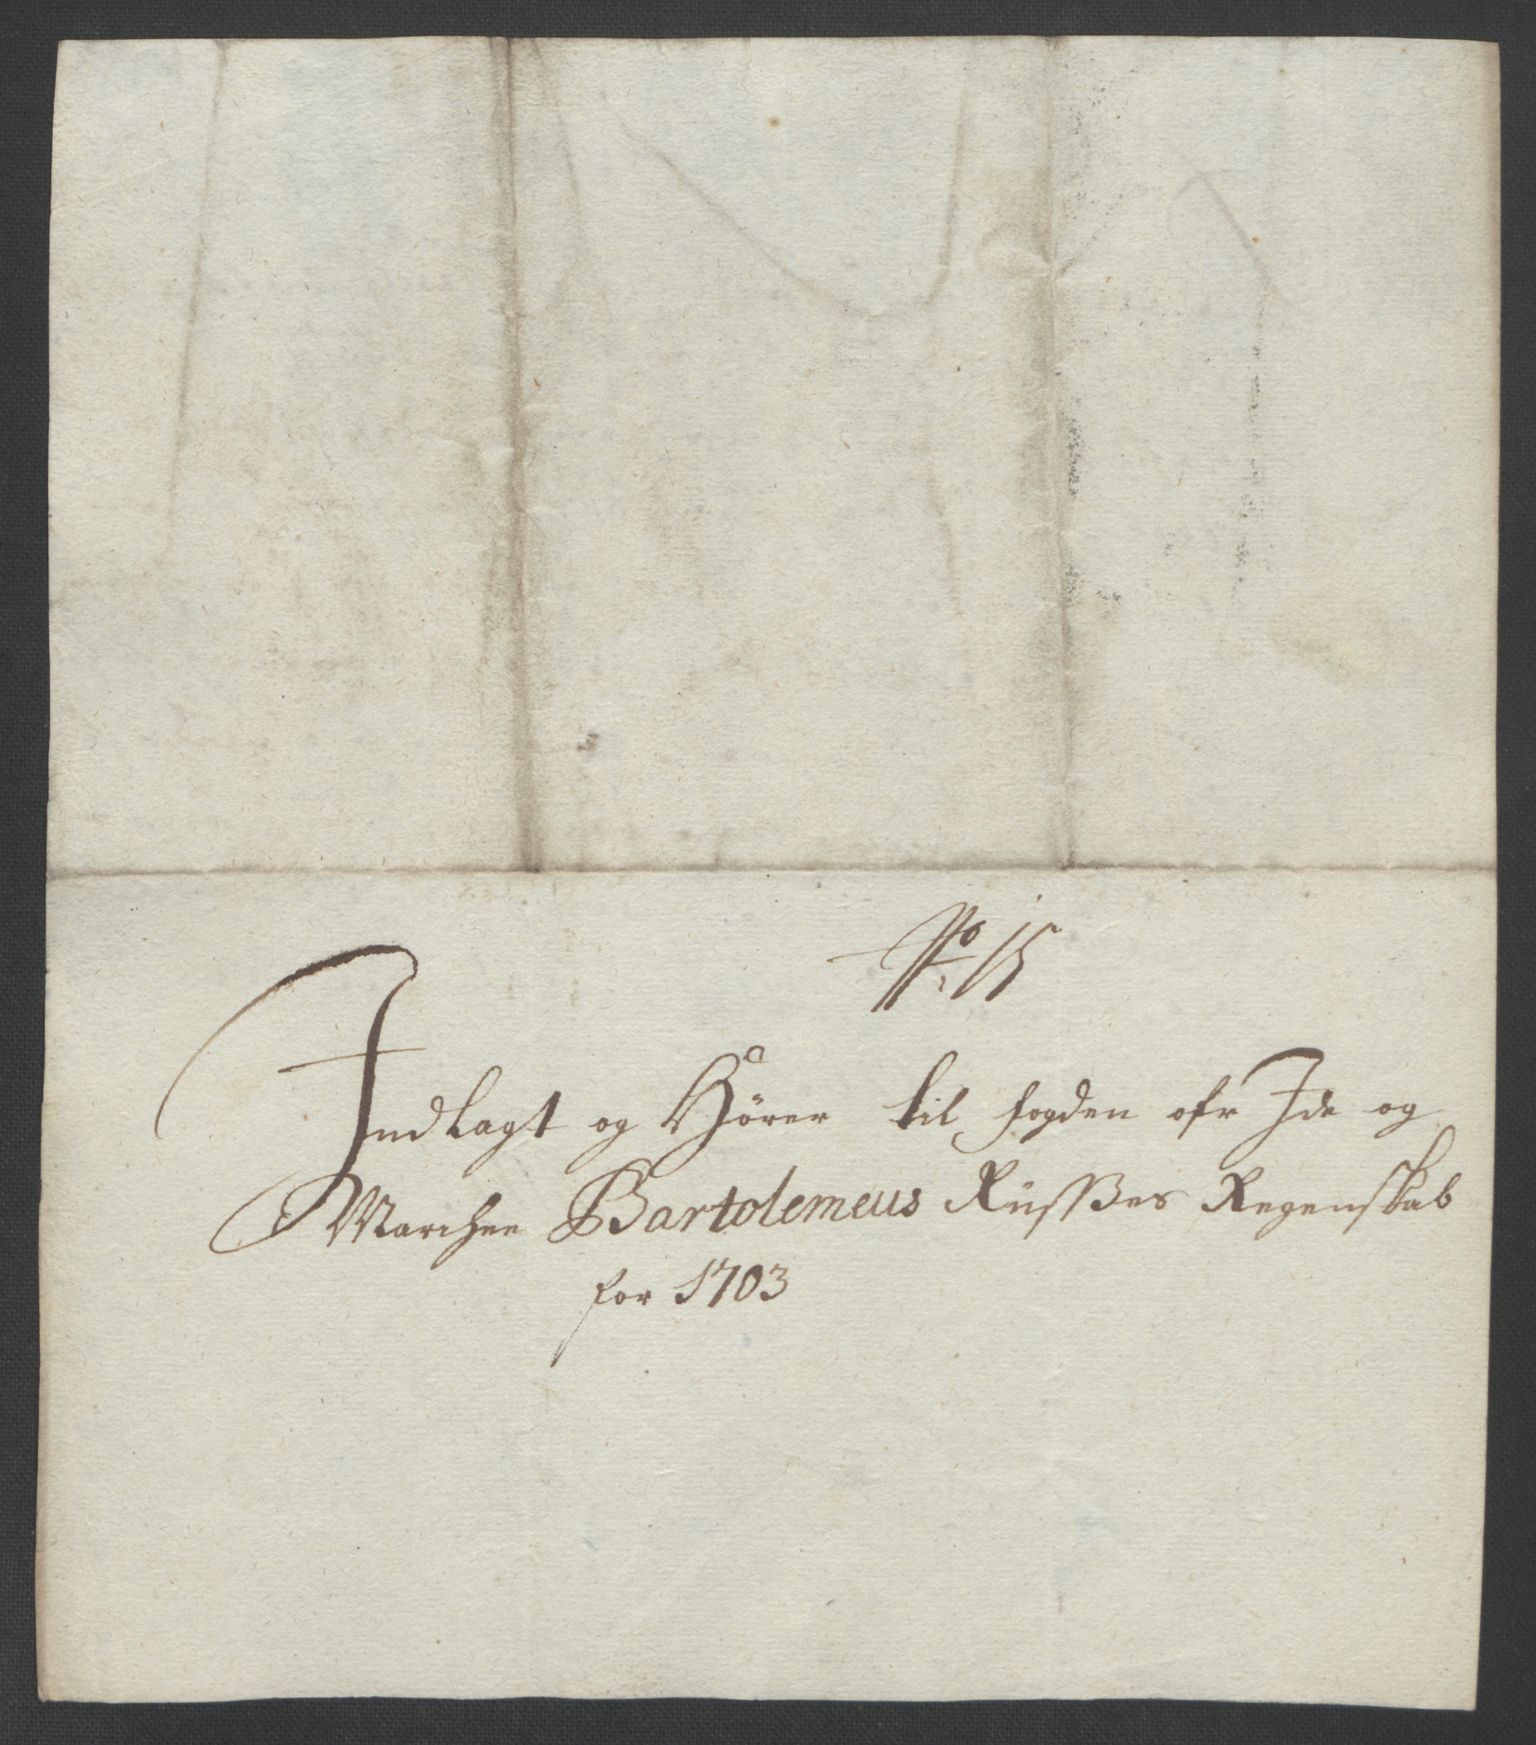 No 15
Indlagt og Hörer til fogden ofr Ide og
Marchee Bartolemeus Rüsszes Regenskab
for 1703